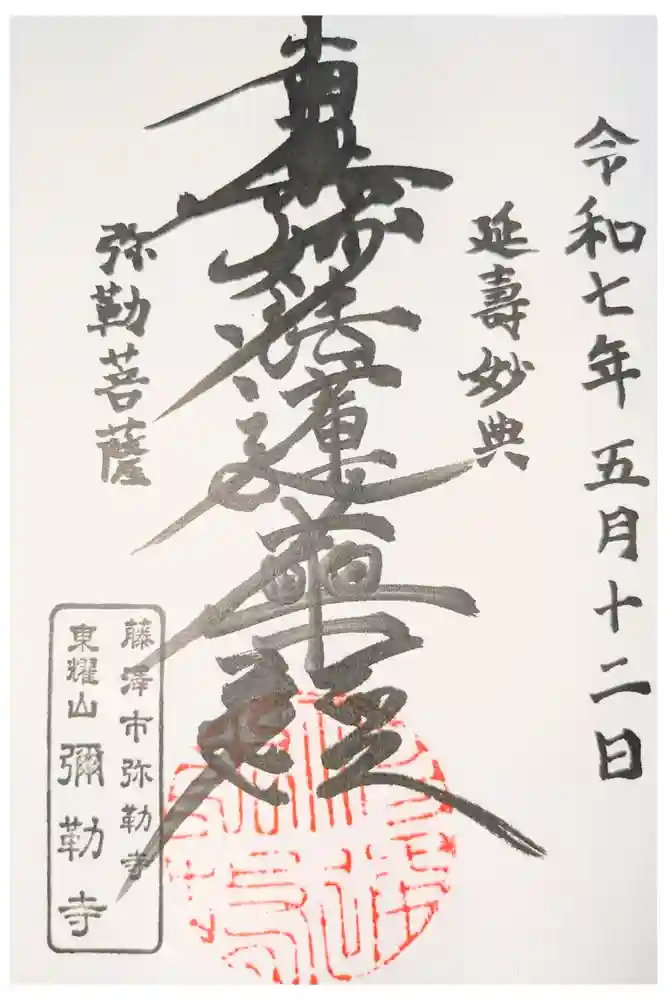 令和七年五月十二日
延壽妙典
南無妙法蓮華経
弥勒菩薩
藤澤市弥勒寺
東耀山 彌勒寺